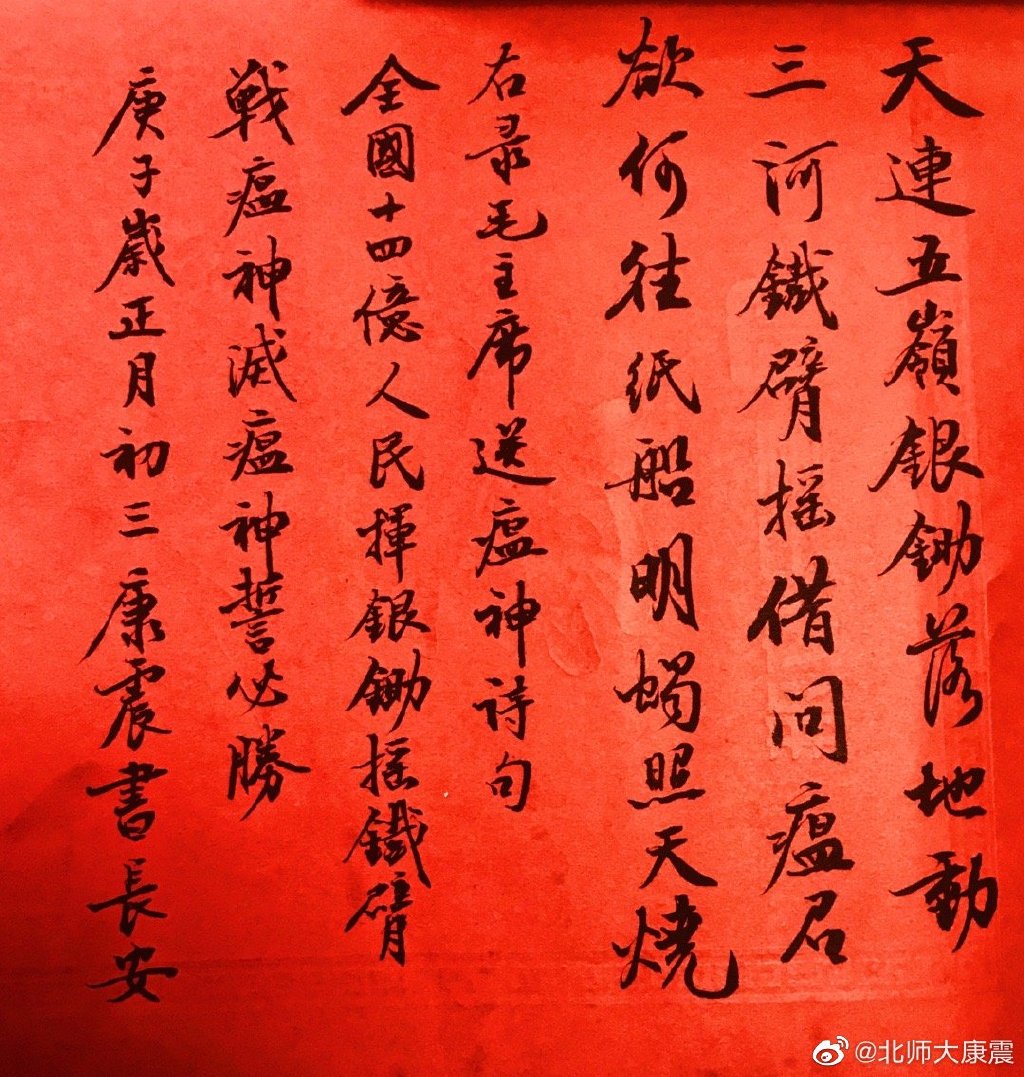 天連五嶺銀鋤落地動
三河鐵臂摇借問瘟君
欲何往纸船明蠋照天燒
右录毛主席送瘟神诗句
全國十四億人民揮銀鋤摇鐵臂
戰瘟神滅瘟神誓必勝
庚子歲正月初三康震書長安
@北师大康震